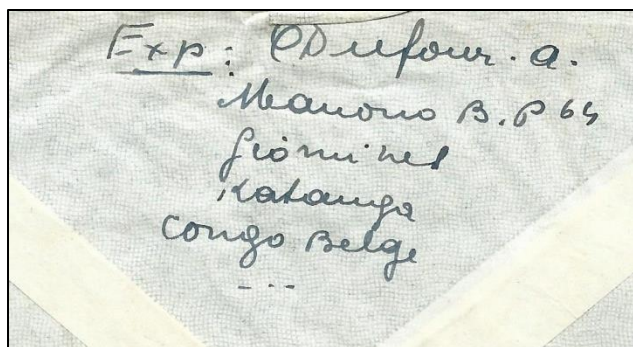 Exp: Dufour. a.
Manono B.P 64
Géomines
Katanga
Congo Belge
---